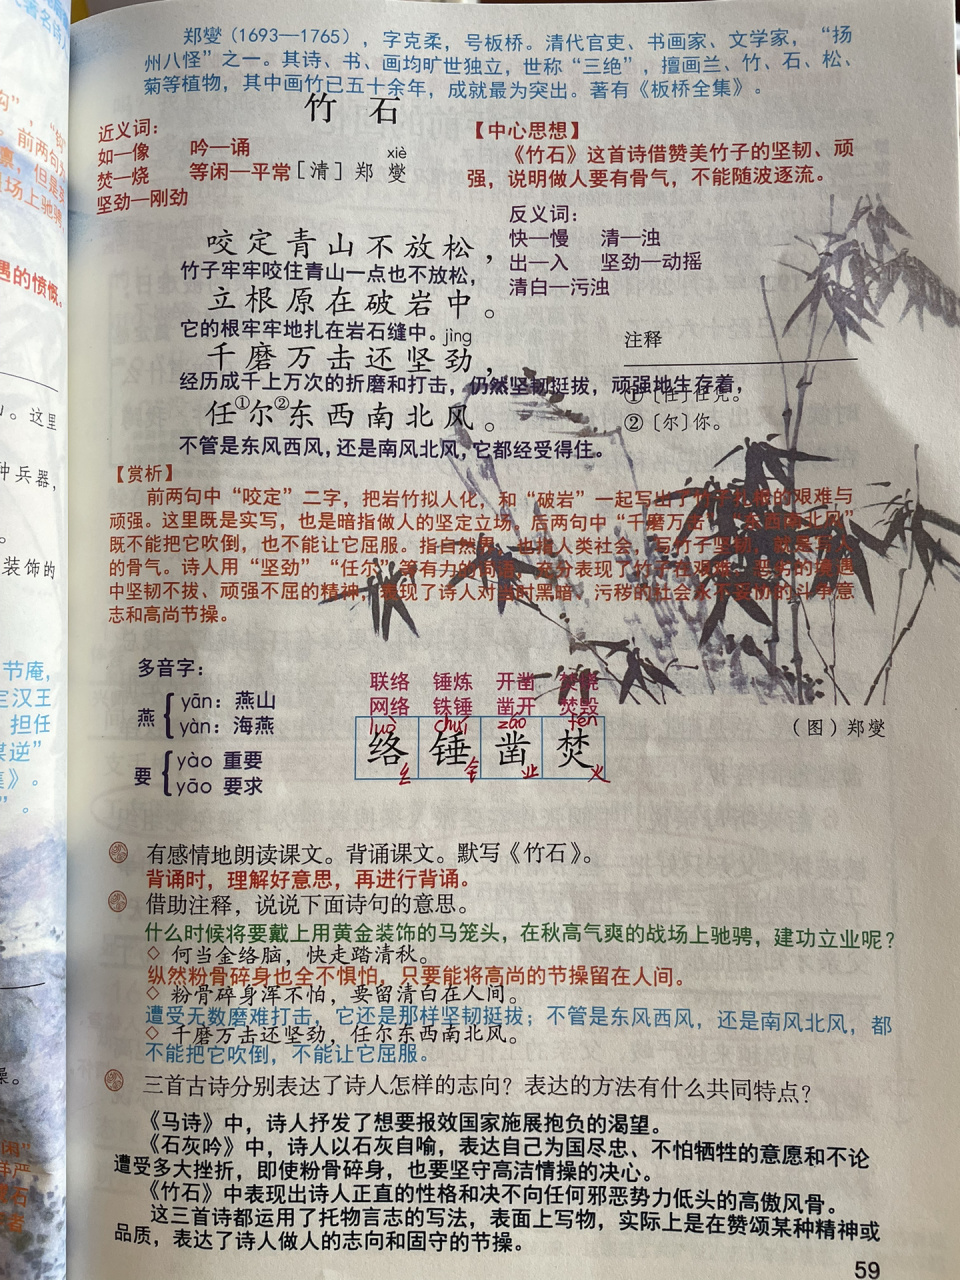 郑燮（1693—1765），字克柔，号板桥。清代官吏、书画家、文学家，“扬
州八怪”之一。其诗、书、画均旷世独立，世称“三绝”，擅画兰、竹、石、松、
菊等植物，其中画竹已五十余年，成就最为突出。著有《板桥全集》。
竹石
近义词：
如—像 吟—诵
焚—烧 等闲—平常
坚劲—刚劲
xiè
［清］郑燮
【中心思想】
《竹石》这首诗借赞美竹子的坚韧、顽
强，说明做人要有骨气，不能随波逐流。
反义词：
快—慢 清—浊
出—入 坚劲—动摇
清白—污浊
咬定青山不放松，
竹子牢牢咬住青山一点也不放松，
立根原在破岩中。
它的根牢牢地扎在岩石缝中。
jìng
千磨万击还坚劲，
经历成千上万次的折磨和打击，仍然坚韧挺拔，顽强地生存着，
任①尔②东西南北风。
不管是东风西风，还是南风北风，它都经受得住。
注释
①〔任〕任凭。
②〔尔〕你。
【赏析】
前两句中“咬定”二字，把岩竹拟人化，和“破岩”一起写出了竹子扎根的艰难与
顽强。这里既是实写，也是暗指做人的坚定立场。后两句中“千磨万击”“东西南北风”
既不能把它吹倒，也不能让它屈服。指自然界，也指人类社会，写竹子坚韧，就是写人
的骨气。诗人用“坚劲”“任尔”等有力的词语，充分表现了竹子在艰难、恶劣的境遇
中坚韧不拔、顽强不屈的精神，表现了诗人对当时黑暗、污秽的社会永不妥协的斗争意
志和高尚节操。
多音字：
燕 yān：燕山
yàn：海燕
要 yào 重要
yāo 要求
联络 锤炼 开凿 焚烧
网络 铁锤 凿开 焚毁
luò chuí záo fén
络 锤 凿 焚
纟 钅 业 火
（图）郑燮
有感情地朗读课文。背诵课文。默写《竹石》。
背诵时，理解好意思，再进行背诵。
借助注释，说说下面诗句的意思。
什么时候将要戴上用黄金装饰的马笼头，在秋高气爽的战场上驰骋，建功立业呢？
◇ 何当金络脑，快走踏清秋。
纵然粉骨碎身也全不惧怕，只要能将高尚的节操留在人间。
◇ 粉骨碎身浑不怕，要留清白在人间。
遭受无数磨难打击，它还是那样坚韧挺拔；不管是东风西风，还是南风北风，都
◇ 千磨万击还坚劲，任尔东西南北风。
不能把它吹倒，不能让它屈服。
三首古诗分别表达了诗人怎样的志向？表达的方法有什么共同特点？
《马诗》中，诗人抒发了想要报效国家施展抱负的渴望。
《石灰吟》中，诗人以石灰自喻，表达自己为国尽忠、不怕牺牲的意愿和不论
遭受多大挫折，即使粉骨碎身，也要坚守高洁情操的决心。
《竹石》中表现出诗人正直的性格和决不向任何邪恶势力低头的高傲风骨。
这三首诗都运用了托物言志的写法，表面上写物，实际上是在赞颂某种精神或
品质，表达了诗人做人的志向和固守的节操。
59